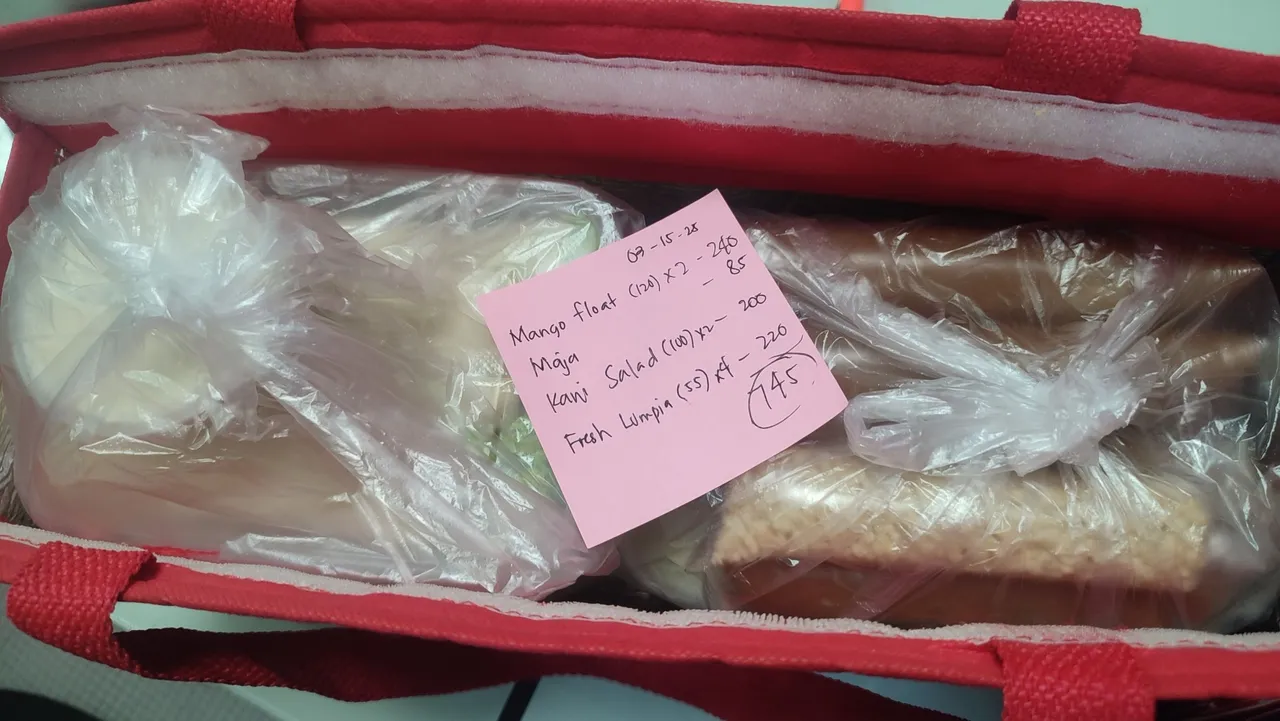 03-15-25
Mango float (120) x 2 - 240
Maja - 85
Kani Salad (100) x2 - 200
Fresh Lumpia (55) x4 - 220
745